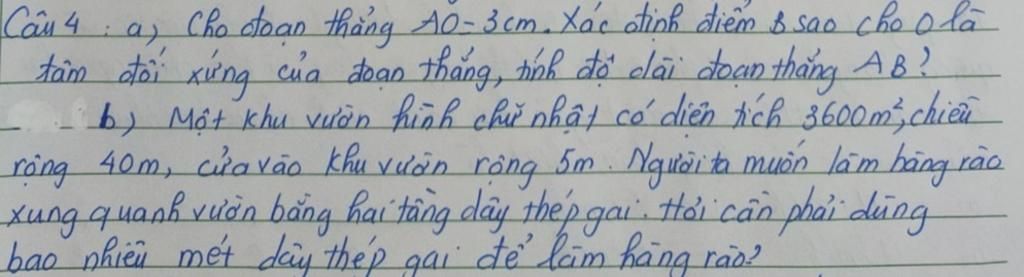 Câu 4 : a) Cho đoạn thẳng AO = 3cm. Xác định điểm B sao cho O là
tâm đối xứng của đoạn thẳng, tính độ dài đoạn thẳng AB?
b) Một khu vườn hình chữ nhật có diện tích 3600m², chiều
rộng 40m, cửa vào khu vườn rộng 5m. Người ta muốn làm hàng rào
xung quanh vườn bằng hai tầng dây thép gai. Hỏi cần phải dùng
bao nhiêu mét dây thép gai để làm hàng rào?